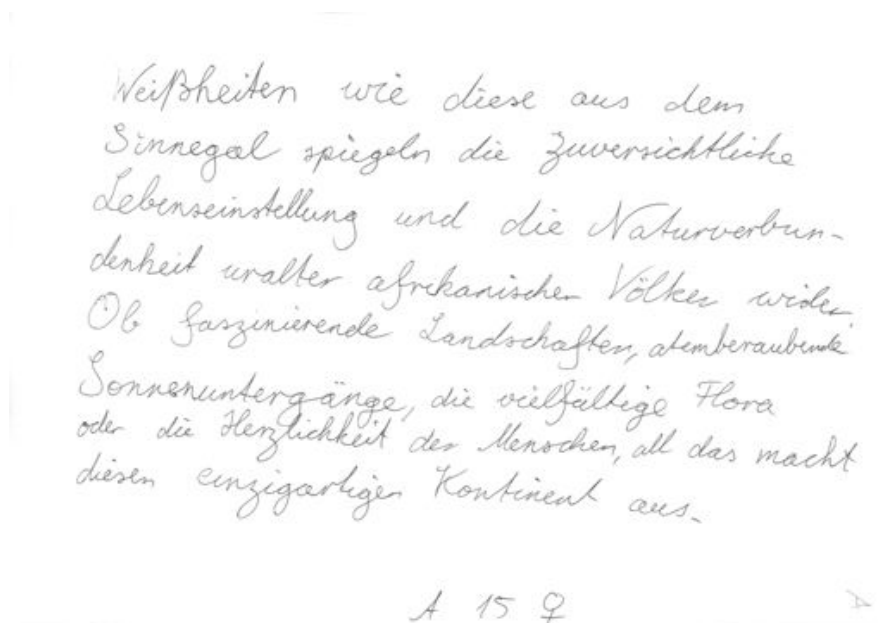 Weißheiten wie diese aus dem
Sinnegal spiegeln die zuversichtliche
Lebenseinstellung und die Naturverbun-
denheit uralter afrikanischer Völker wider.
Ob faszinierende Landschaften, atemberaubende
Sonnenuntergänge, die vielfältige Flora
oder die Herzlichkeit der Menschen, all das macht
diesen einzigartigen Kontinent aus.
A 15 ♀
A